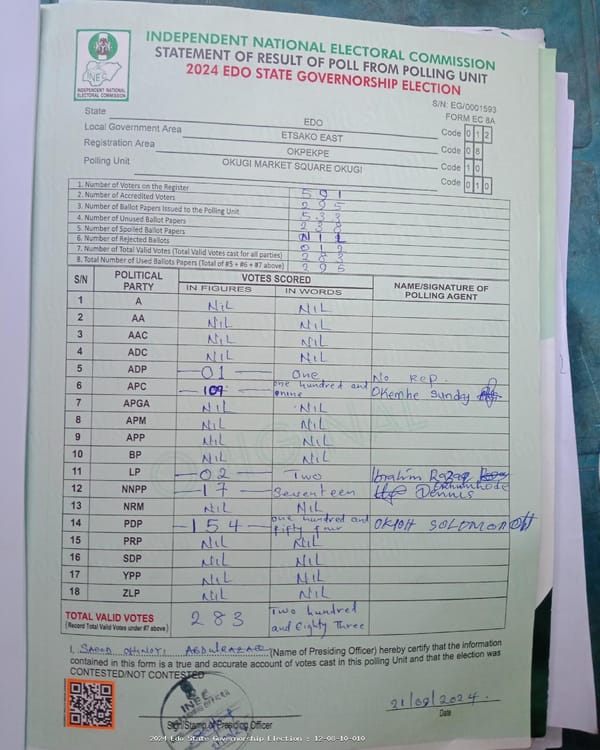 INDEPENDENT NATIONAL ELECTORAL COMMISSION
STATEMENT OF RESULT OF POLL FROM POLLING UNIT
2024 EDO STATE GOVERNORSHIP ELECTION
INEC
INDEPENDENT NATIONAL ELECTORAL COMMISSION
S/N: EG/0001593
FORM EC 8A
State EDO Code 012
Local Government Area ETSAKO EAST Code 08
Registration Area OKPEKPE Code 10
Polling Unit OKUGI MARKET SQUARE OKUGI Code 010
1. Number of Voters on the Register 591
2. Number of Accredited Voters 295
3. Number of Ballot Papers Issued to the Polling Unit 533
4. Number of Unused Ballot Papers 238
5. Number of Spoiled Ballot Papers NIL
6. Number of Rejected Ballots 012
7. Number of Total Valid Votes (Total Valid Votes cast for all parties) 283
8. Total Number of Used Ballots Papers (Total of #5 + #6 + #7 above) 295
S/N POLITICAL PARTY VOTES SCORED NAME/SIGNATURE OF POLLING AGENT
IN FIGURES IN WORDS
1 A NIL NIL
2 AA NIL NIL
3 AAC NIL NIL
4 ADC NIL NIL
5 ADP 01 One No rep.
6 APC 109 one hundred and nine Okemhe Sunday
7 APGA NIL NIL
8 APM NIL NIL
9 APP NIL NIL
10 BP NIL NIL
11 LP 02 Two Ibrahim Razaq
12 NNPP 17 Seventeen Dennis
13 NRM NIL NIL
14 PDP 154 one hundred and fifty four SOLOMON
15 PRP NIL NIL
16 SDP NIL NIL
17 YPP NIL NIL
18 ZLP NIL NIL
TOTAL VALID VOTES 283 Two hundred and Eighty Three
(Record Total Valid Votes under #7 above)
ORIGINAL
I, ABDULRAZAQ (Name of Presiding Officer) hereby certify that the information
contained in this form is a true and accurate account of votes cast in this polling Unit and that the election was
CONTESTED/NOT CONTESTED
INEC
21/09/2024.
Sign/Stamp of Presiding Officer Date
2024 Edo State Governorship Election : 12-08-10-010